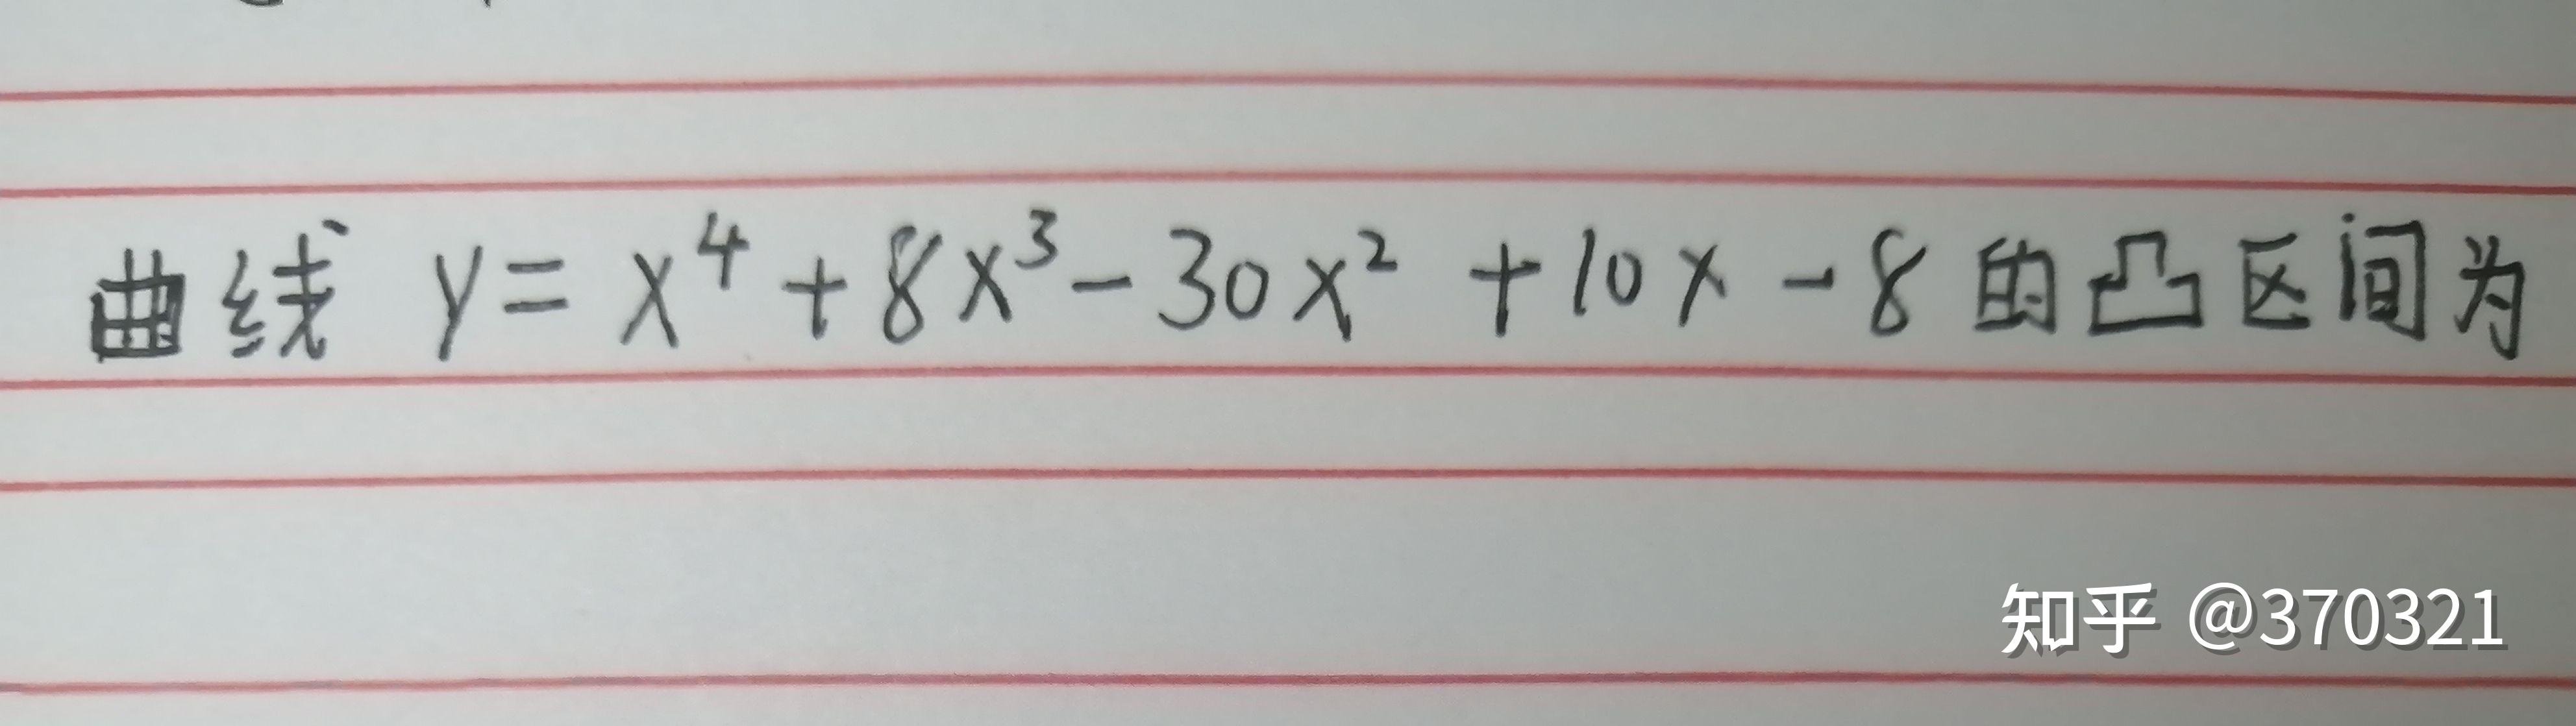 曲线 y = x⁴ + 8x³ - 30x² + 10x - 8 的凸区间为
知乎 @370321